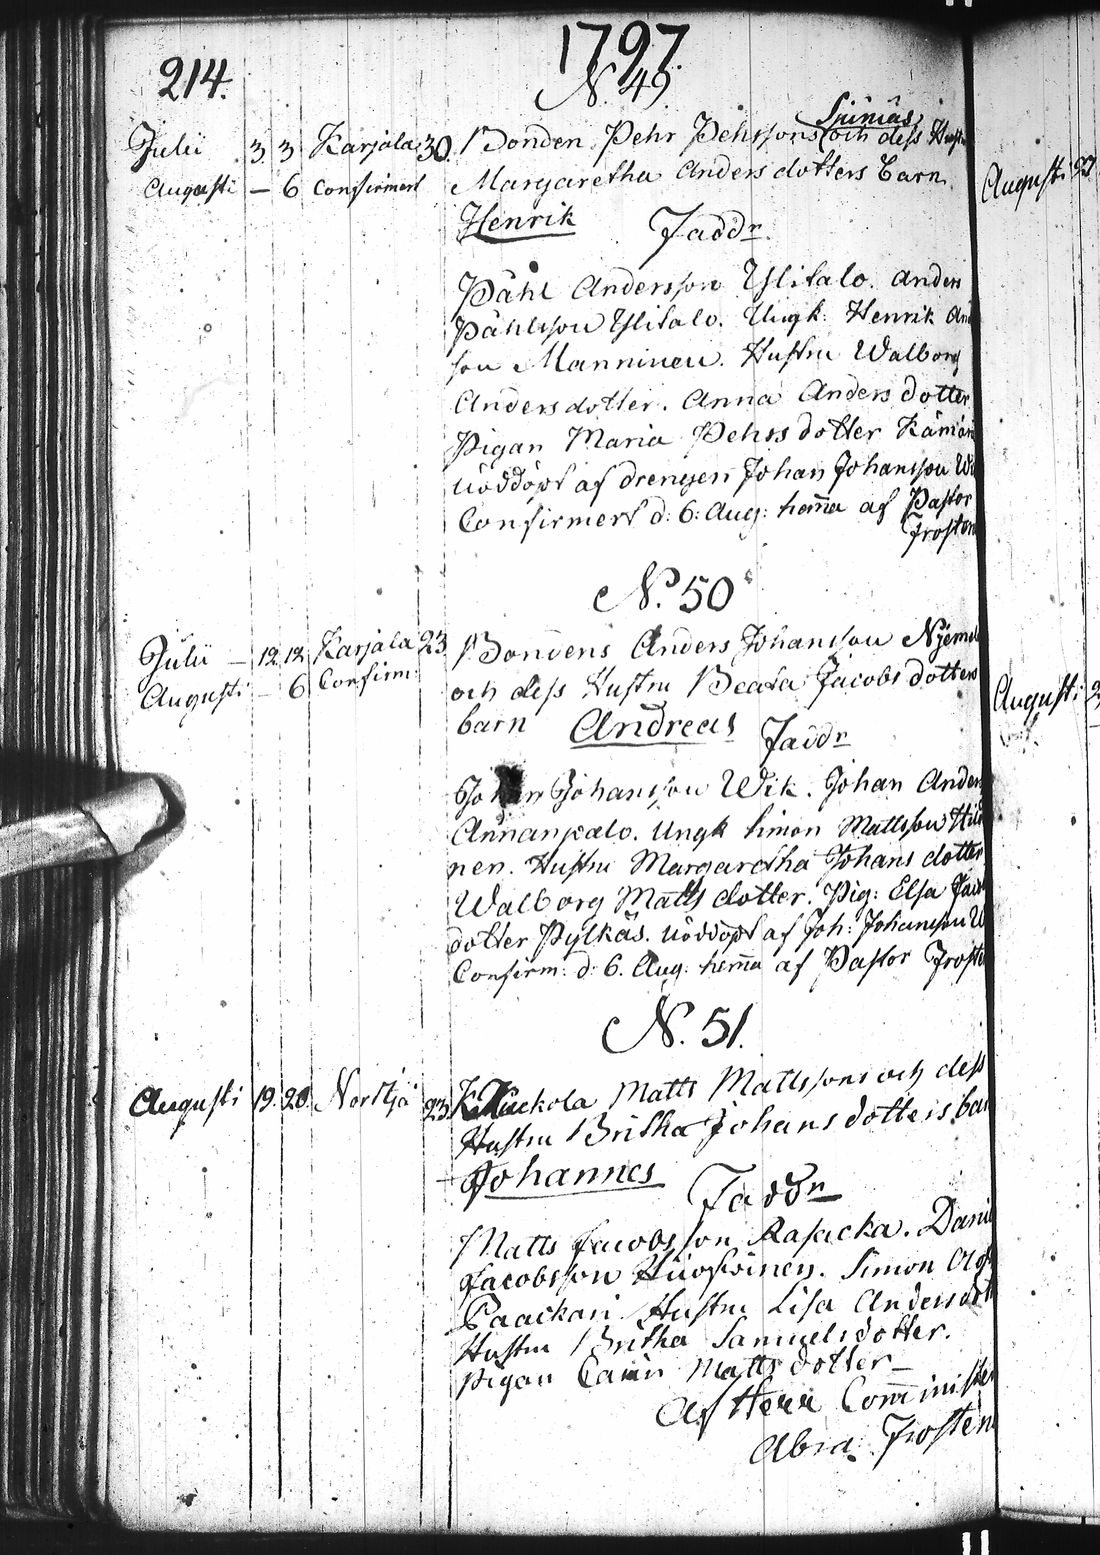 1797.
214.
N. 49
Julii 3 3 Karjala 30 Bonden Pehr Pehrssons och dess
Augusti — 6 Confirmert Margaretha Anders dotters barn
Henrik Faddr
Påhl Andersson Ylitalo. Anders
Påhlsson Ylitalo. Ungk. Henrik
son Manninen. Hustru Walborg
Anders dotter. Anna Anders dotter
Pigan Maria Pehrs dotter
nöddöpt af drengen Johan Johansson
Confirmert d: 6: Aug: hema af Pastor
Frosten
N. 50
Julii — 12 12 Karjala 23 Bondens Anders Johansson
Augusti — 6 Confirm: och dess Hustru Beata Jacobs dotters
barn Andreas Faddr
Johan Johansson Wik. Johan Anders
Annanpalo. Ungk Simon Mattsson
nen. Hustru Margaretha Johans dotter
Walborg Matts dotter. Pig: Elsa
dotter Pylkäs. nöddöpt af Joh: Johansson
Confirm: d: 6. Aug: hema af Pastor
N. 51.
Augusti 19. 20. 23 Matts Mattssons och dess
Hustru Britha Johans dotters
Johannes
Faddr
Matts Jacobsson
Jacobsson Simon
Hustru Lisa Anders
Hustru Britha Samuels dotter.
Pigan Carin Matts dotter —
Af Herr Comminister
Abra. Frosten
Augusti
Augusti